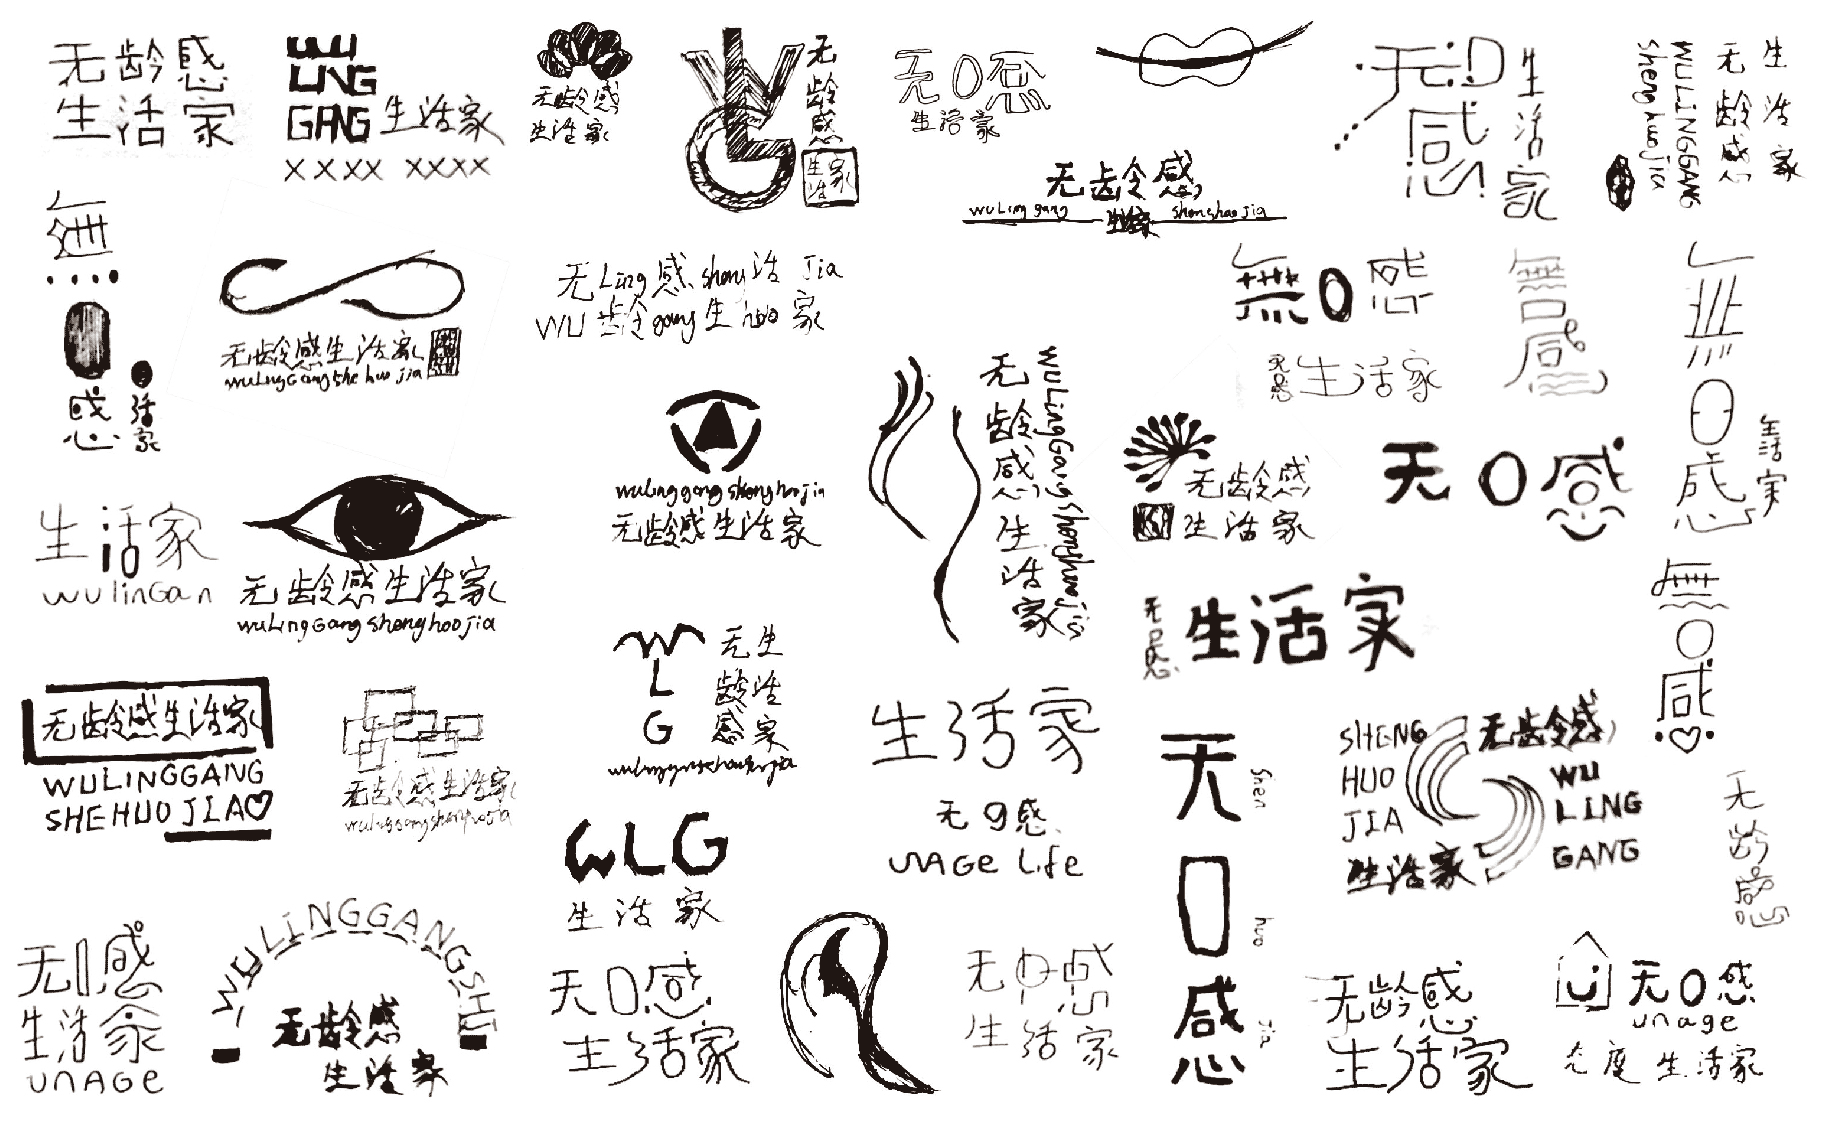 无龄感
生活家
WU
LING
GANG 生活家
XXXX XXXX
无龄感
生活家
无龄感
生活家
无0感
生活家
无龄感
wuLing gang 生活家 shenghuo jia
无口感
生活家
生活家
无龄感
WULINGGANG
shenghuojia
無
感
生活家
无龄感生活家
wuLingGangShe huo jia
无Ling感sheng活Jia
WU龄gang生huo家
無0感
无0感 生活家
無口感
無
0感
生活家
wulinggangshenghuojia
无龄感生活家
无龄感生活家
wuLingGangshenghuojia
无龄感
生活家
无0感
生活家
wulinGan
无龄感生活家
wuLingGangshenghuojia
无口感
生活家
無0感
无龄感生活家
WULINGGANG
SHEHUOJIA
无龄感生活家
W
L
G
无龄感
生活家
生活家
无0感
UNAGE Life
无
口
感
Shen
huo
Jia
SHENG
HUO
JIA
生活家
无龄感
WU
LING
GANG
无龄感
WLG
生活家
无0感
生活家
UNAGE
WULINGGANGSHU
无龄感
生活家
无0感
生活家
无0感
生活家
无龄感
生活家
无0感
unage
态度 生活家